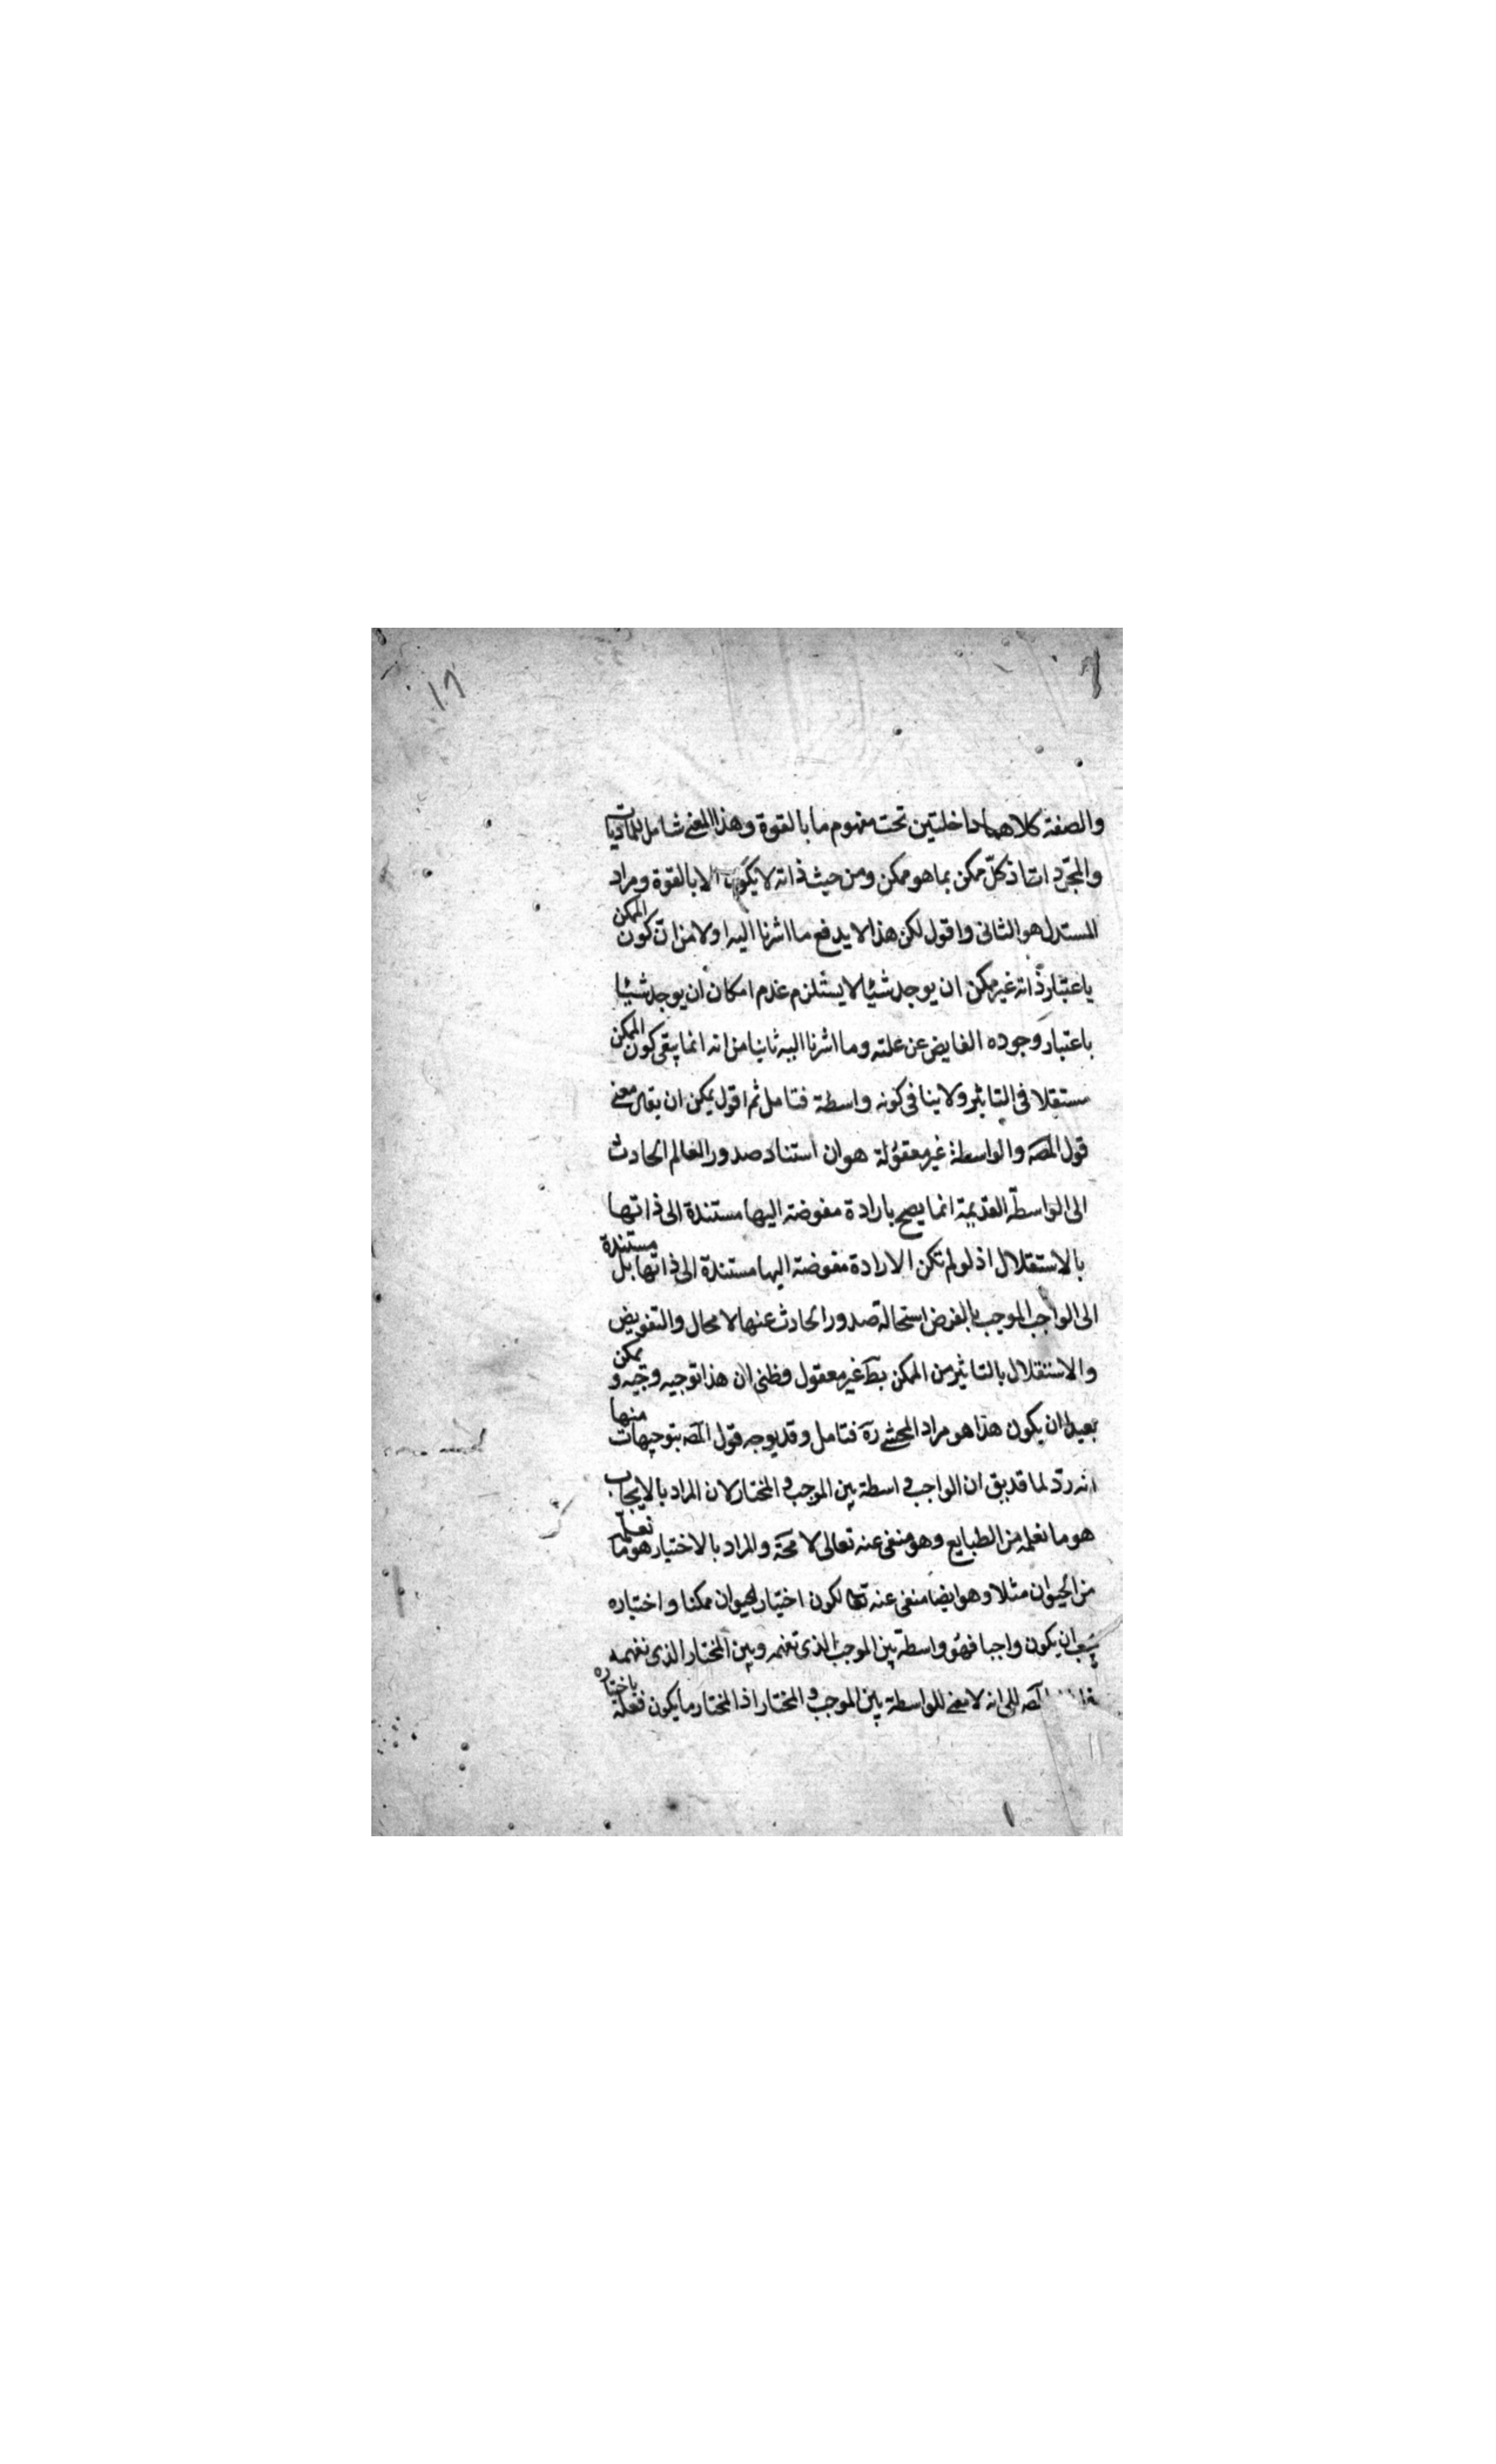 ١٦
والصفة كلاهما داخلتين تحت مفهوم ما بالقوة وهذا المعنى شامل للماديات
والمجردات اذ كلّ ممكن بما هو ممكن ومن حيث ذاته لا يكون الا بالقوة ومراد
المستدل هو الثانى واقول لكن هذا لا يدفع ما اشرنا اليه اولا من ان كون الممكن
باعتبار ذاته غير ممكن ان يوجد شيئا لا يستلزم عدم امكان ان يوجد شيئا
باعتبار وجوده الفايض عن علته وما اشرنا اليه ثانيا من انه انما ينفى كون الممكن
مستقلا فى التاثير ولا ينافى كونه واسطة فتامل ثم اقول يمكن ان يقال معنى
قول المصه والواسطة غير معقولة هو ان استناد صدور العالم الحادث
الى الواسطّه القديمة انما يصح بارادة مفوضة اليها مستندة الى ذاتها
بالاستقلال اذ لو لم تكن الارادة مفوضة اليها مستندة الى ذاتها بل مستندة
الى الواجب الموجب بالفرض استحالة صدور الحادث عنها لا محال والتفويض
والاستقلال بالتاثير من الممكن بط غير معقول وظنى ان هذا توجيه وجيه و يمكن
بعيدا ان يكون هذا هو مراد المحشى ره فتامل وقد يوجه قول المصه بتوجيهات منها
انه ردّ لما قد يق ان الواجب واسطة بين الموجب والمختار لان المراد بالايجاب
هو ما نعلمه من الطبايع وهو منفى عنه تعالى لا محة والمراد بالاختيار هو ما نعلمه
من الحيوان مثلا وهو ايضا منفى عنه تعا لكون اختيار الحيوان ممكنا واختياره
يجب ان يكون واجبا فهو واسطة بين الموجب الذى نفهم وبين المختار الذى نفهمه
المصه الى انه لا معنى للواسطة بين الموجب والمختار اذ المختار ما يكون فعله باختياره